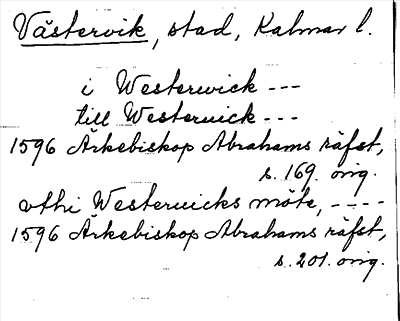 Västervik, stad, Kalmar l.
i Westerwick ---
till Westerwick ---
1596 Ärkebiskop Abrahams räfst,
s. 169. orig.
vthi Westerwicks möte, ----
1596 Ärkebiskop Abrahams räfst,
s. 201. orig.